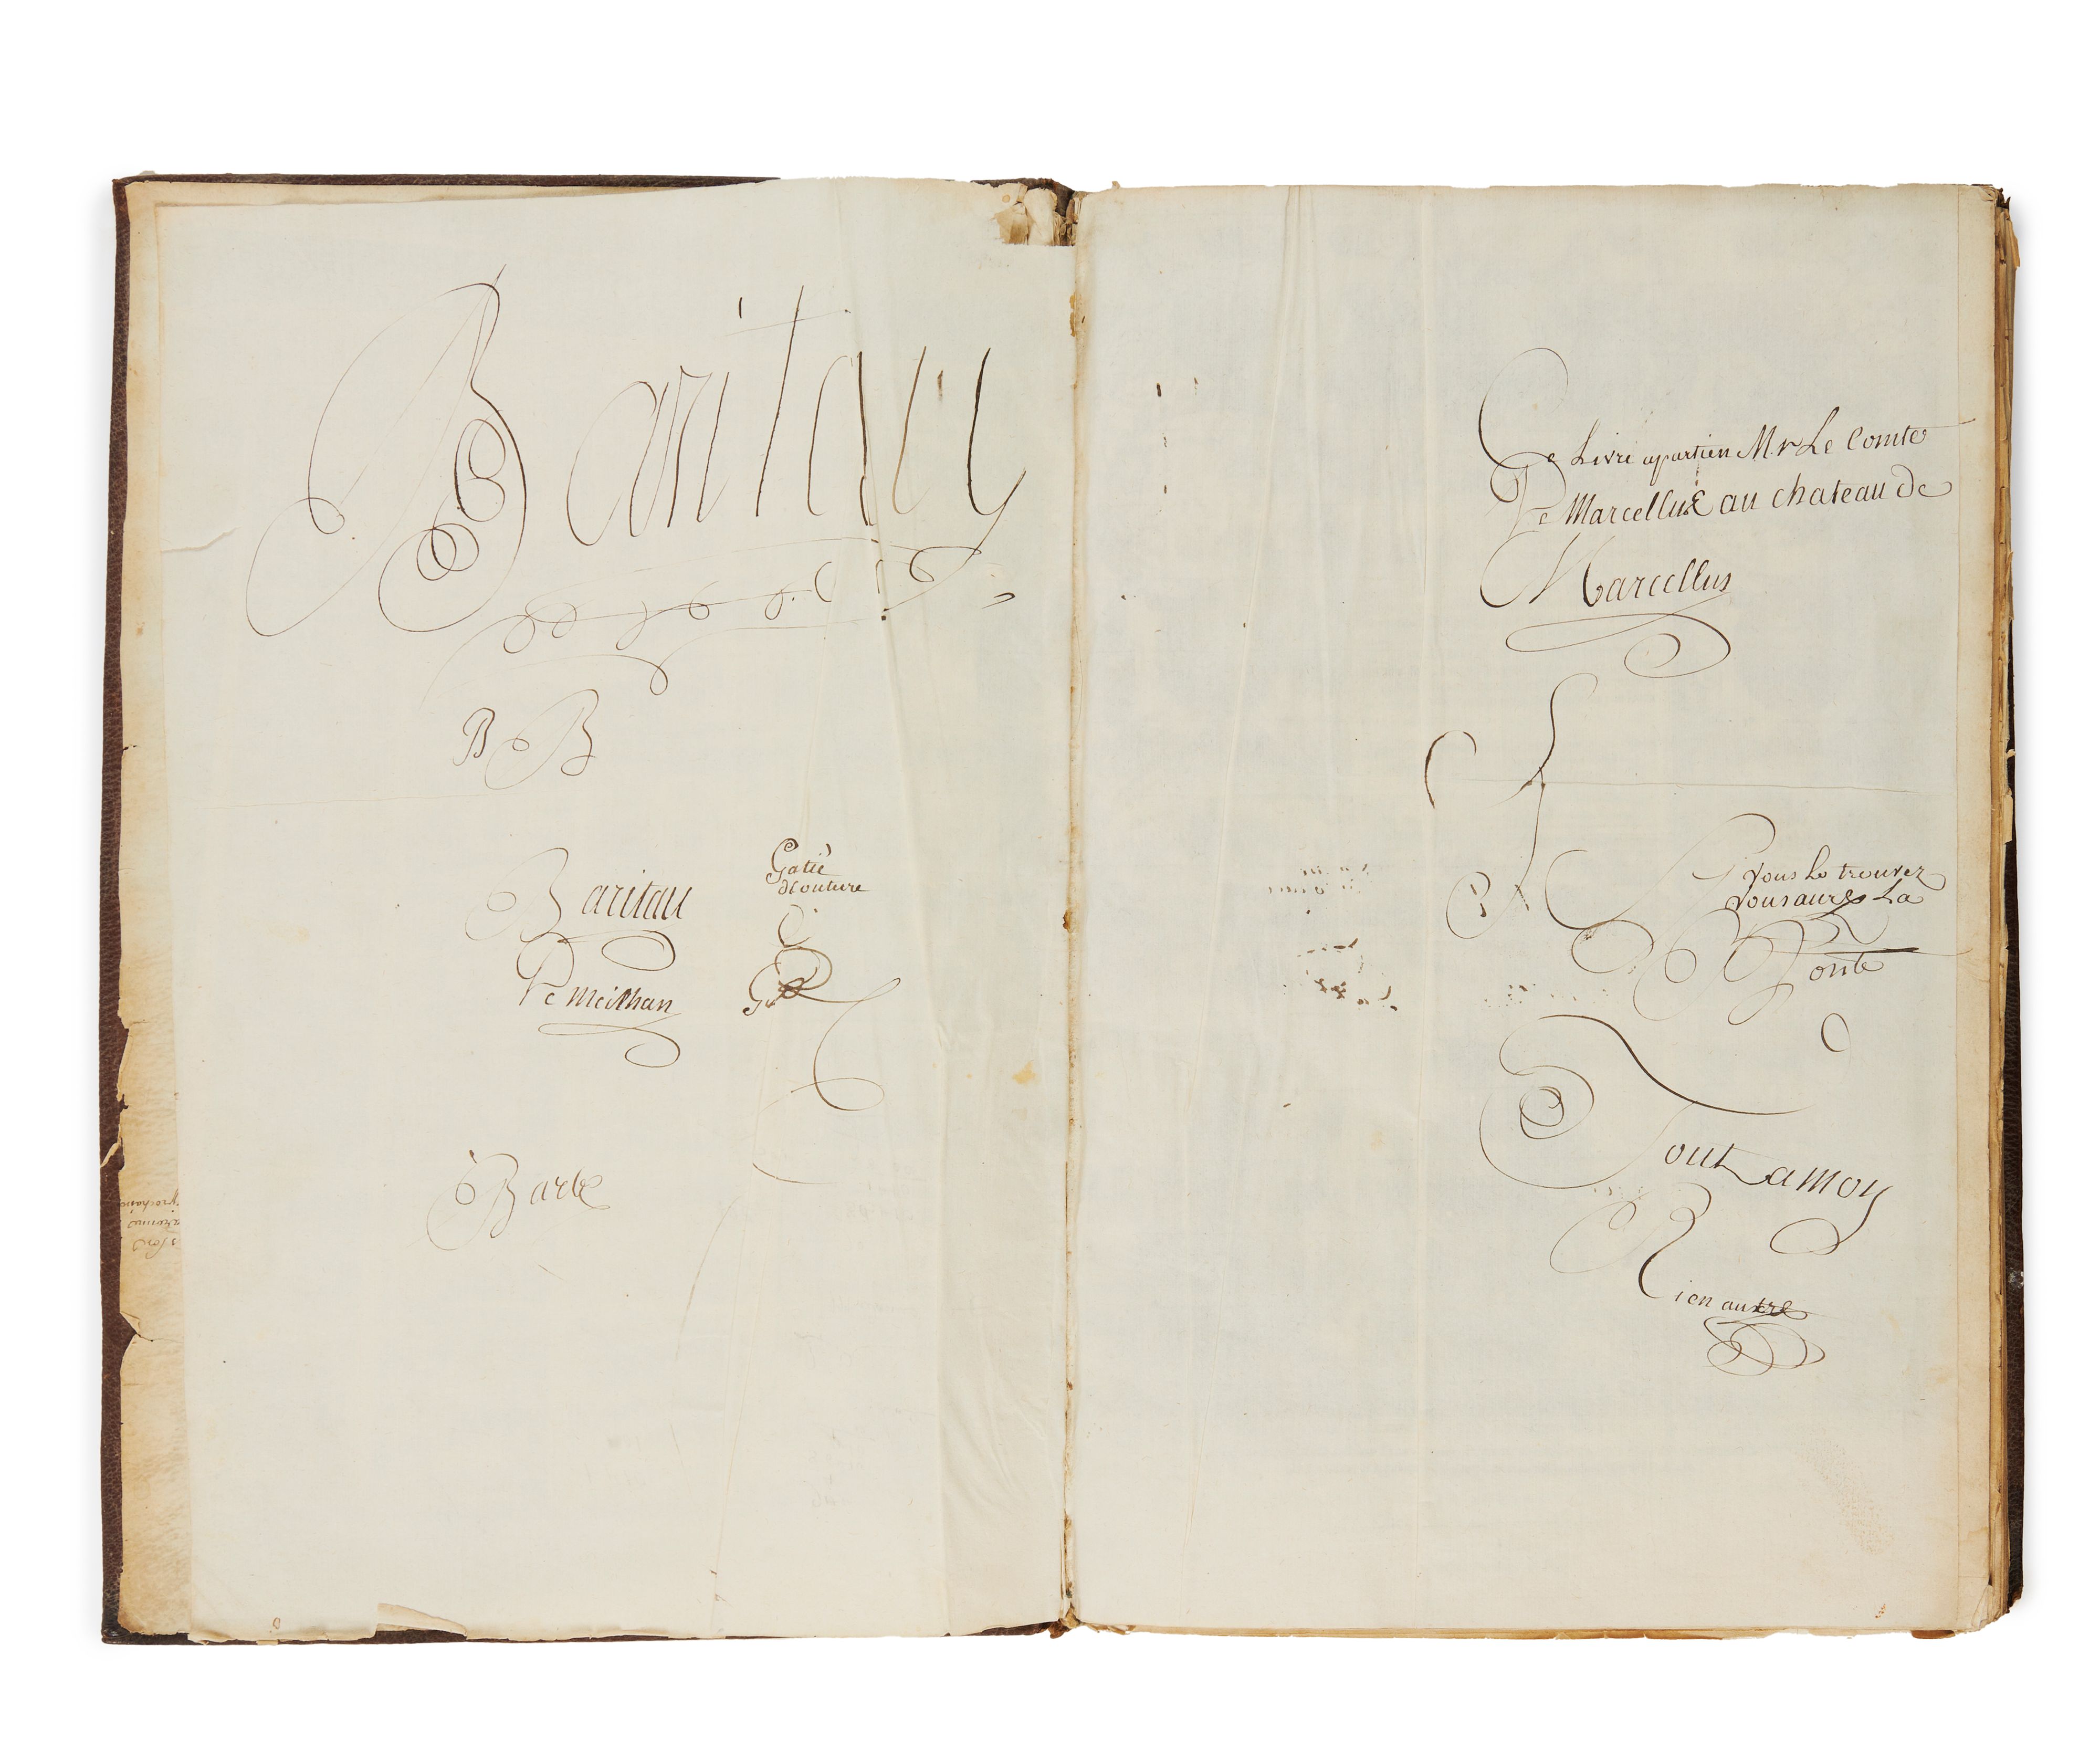 Baritau
B B
Baritau
De Meilhan
Gatié
d'Couture
Barbe
Ce Livre apartien M.r Le Comte
De Marcellus au chateau de
Marcellus
Si vous Le trouvez
Vous aures La
Bonte
Tout a moy
Rien autre